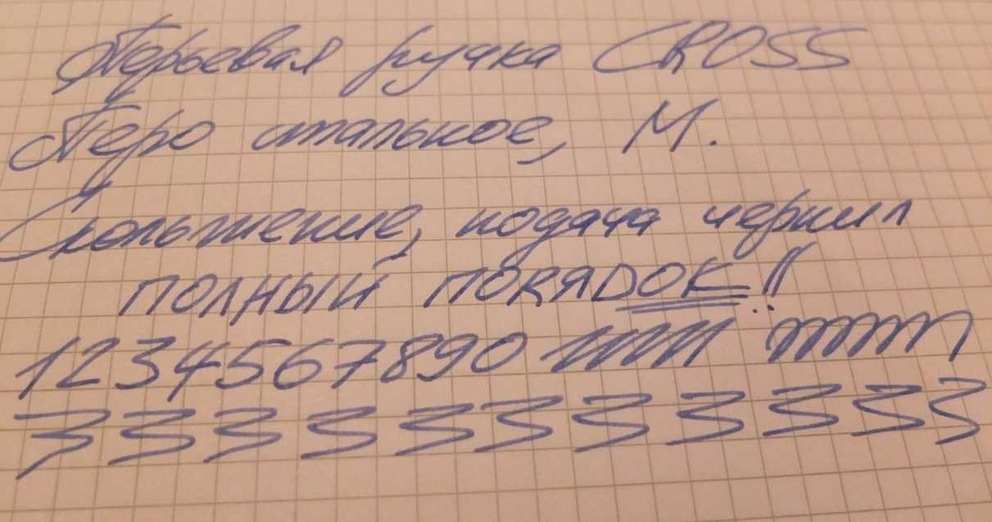 Перьевая ручка CROSS
Перо стальное, М.
Скольжение, подача чернил
ПОЛНЫЙ ПОРЯДОК!!
1234567890